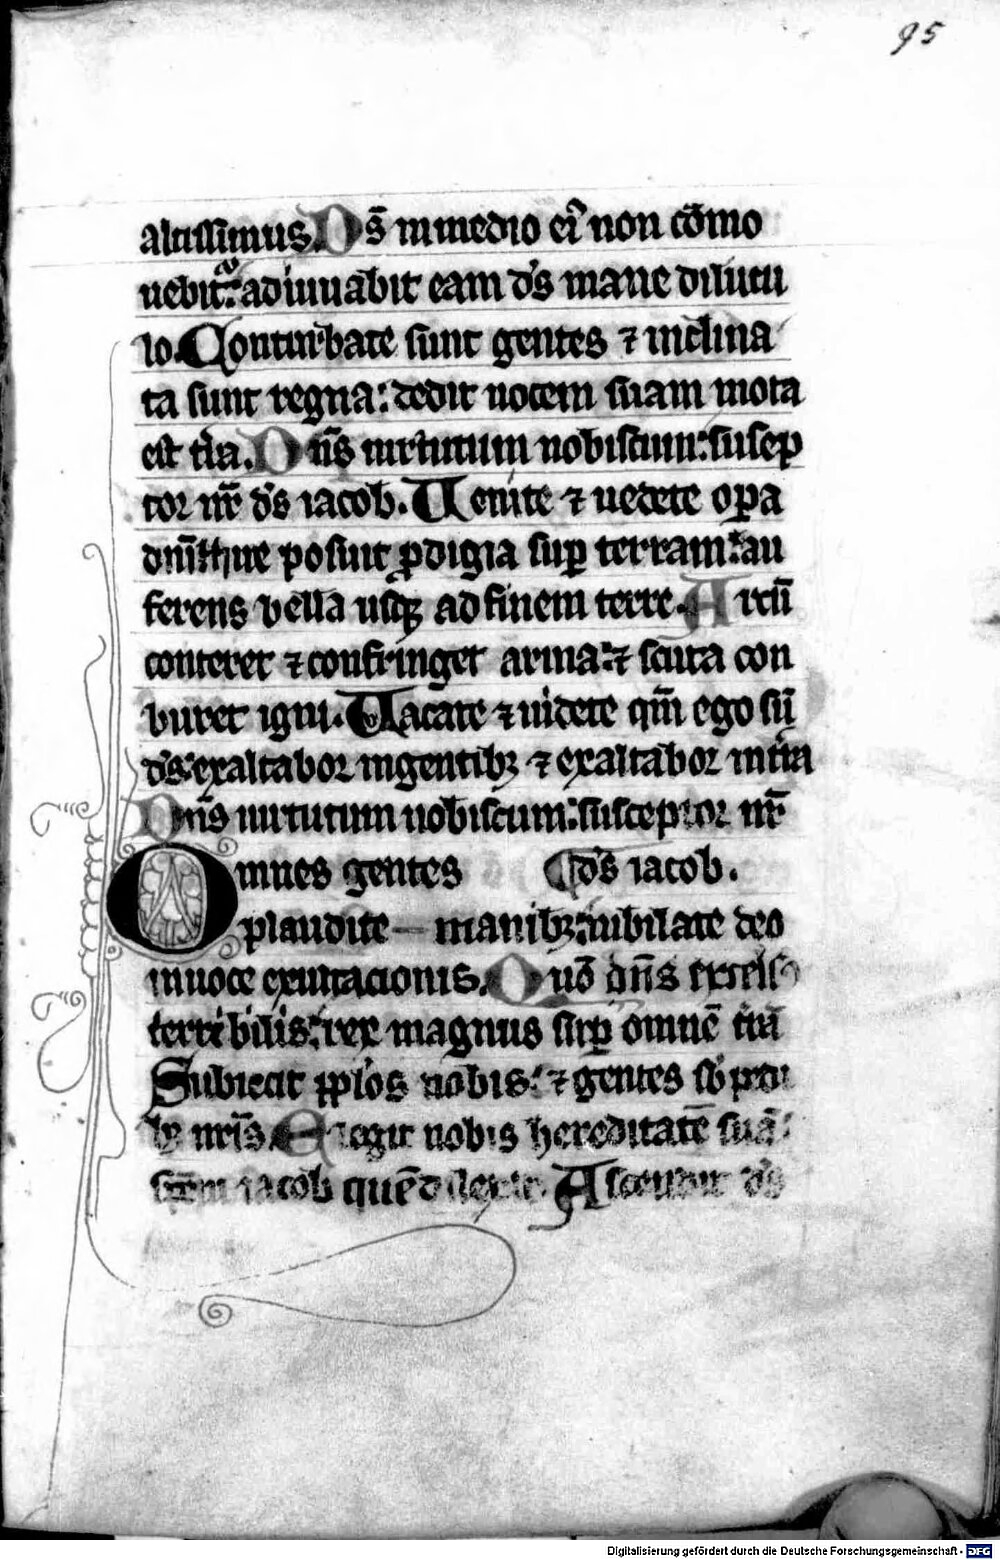 95
altissimus. Ds̄ in medio ei᷒ non cōmo
uebit᷑: adiuuabit eam ds̄ mane dilucu
lo. Conturbate sunt gentes ⁊ inclina
ta sunt regna: dedit uocem suam mota
est tr̄a. Dn̄s uirtutum nobiscum: suscep
tor nr̄ ds̄ iacob. Uenite ⁊ uedete oꝑa
dn̄i que posuit ꝓdigia suꝑ terram: au
ferens bella usqꝫ ad finem terre. Arcū
conteret ⁊ confringet arma: ⁊ scuta con
buret igni. Uacate ⁊ uidete qm̄ ego sū
ds̄: exaltabor in gentibꝫ ⁊ exaltabor in tr̄a
Dn̄s uirtutum nobiscum: susceptor nr̄
Omnes gentes ds̄ iacob.
plaudite manibꝫ: iubilate deo
in uoce exultacionis. Quō dn̄s excels᷒
terribilis: rex magnus suꝑ omnē tr̄ā
Subiecit ppl̄os nobis: ⁊ gentes sb̄ pedi
bꝫ nr̄is. Elegit nobis hereditatē suā:
iacob quē dilexit. Ascendit ds̄
Digitalisierung gefördert durch die Deutsche Forschungsgemeinschaft - DFG